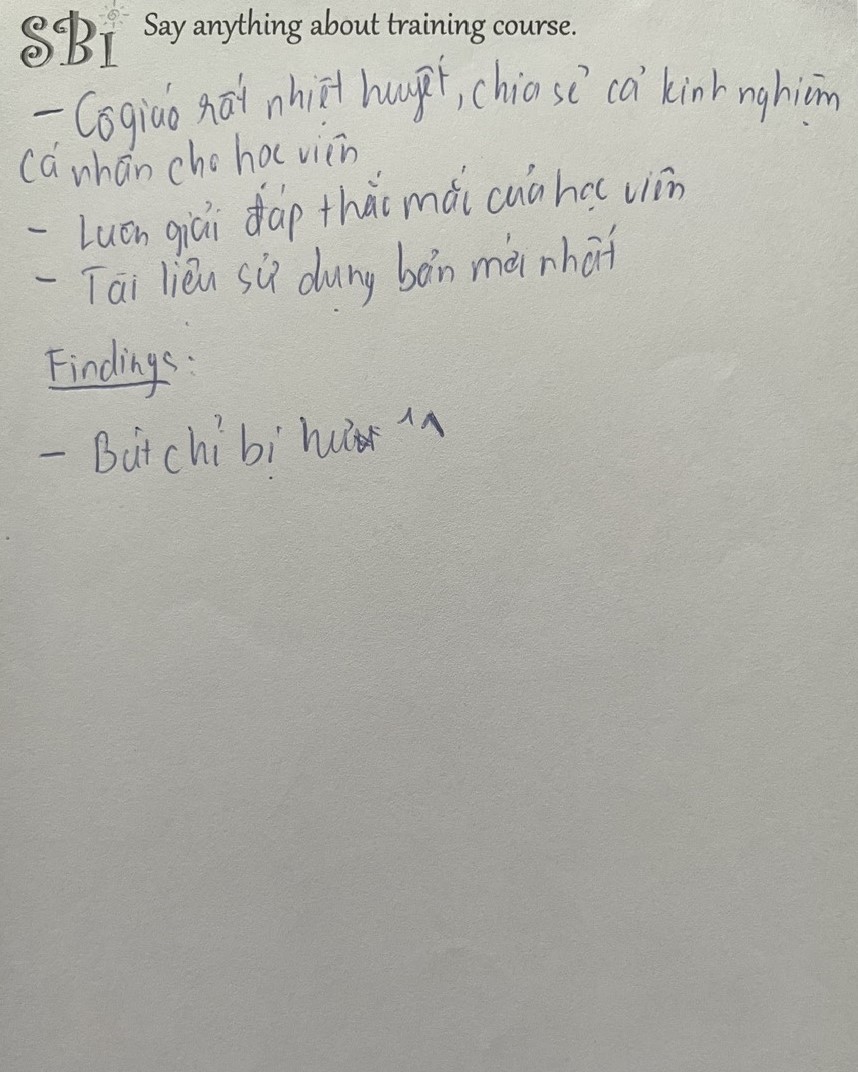 SBI Say anything about training course.
- Cô giáo rất nhiệt huyết, chia sẻ cả kinh nghiệm
cá nhân cho học viên
- Luôn giải đáp thắc mắc của học viên
- Tài liệu sử dụng bản mới nhất
Findings:
- Bút chì bị hư ^^